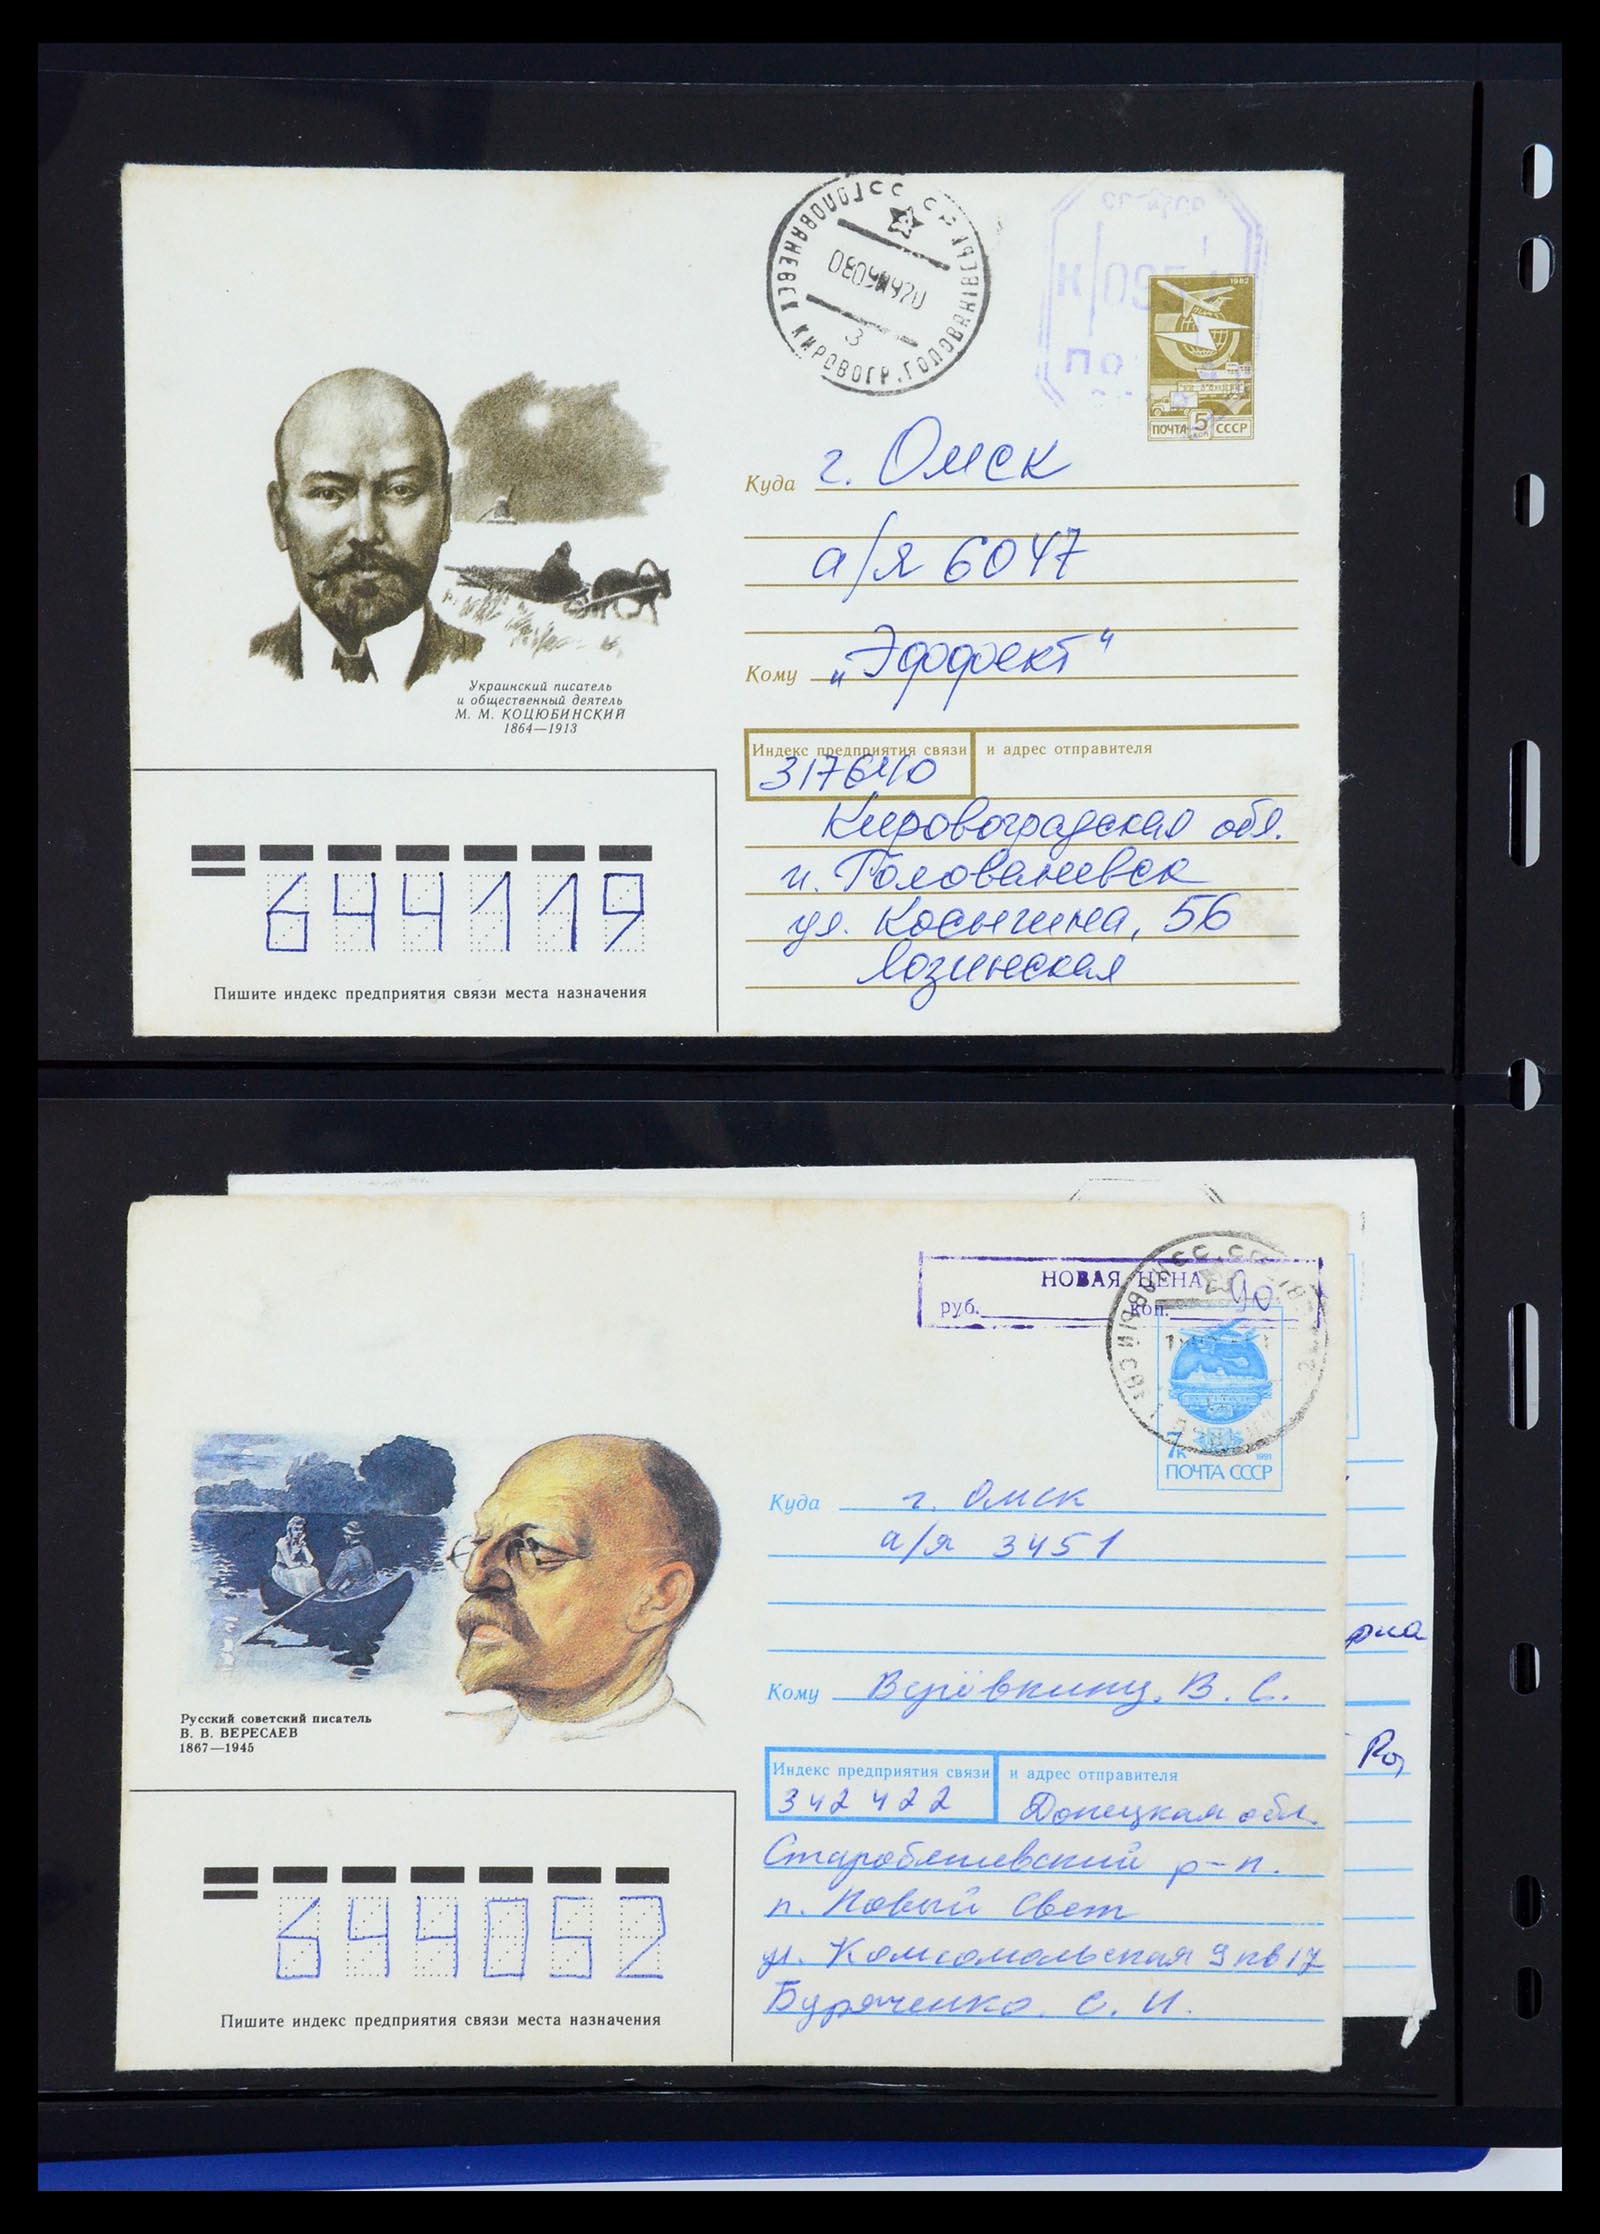 ГОЛОВАНЕВСК КИРОВОГР.
3
1982
ПОЧТА 5 СССР
коп
Куда г. Омск
а/я 6047
Кому „Эффект“
Украинский писатель
и общественный деятель
М. М. КОЦЮБИНСКИЙ
1864—1913
Индекс предприятия связи и адрес отправителя
317640
Кировоградская обл.
п. Голованевск
ул. Косыгина, 56
Лозинская
644119
Пишите индекс предприятия связи места назначения
НОВАЯ ЦЕНА
руб. коп. 90
7к
1991
ПОЧТА СССР
Куда г. Омск
а/я 3451
Кому В. С.
Русский советский писатель
В. В. ВЕРЕСАЕВ
1867—1945
Индекс предприятия связи и адрес отправителя
342422 Донецкая обл.
Старобешевский р-н.
п. Новый Свет
ул. Комсомольская 9 кв 17
Буряченко С. И.
644052
Пишите индекс предприятия связи места назначения